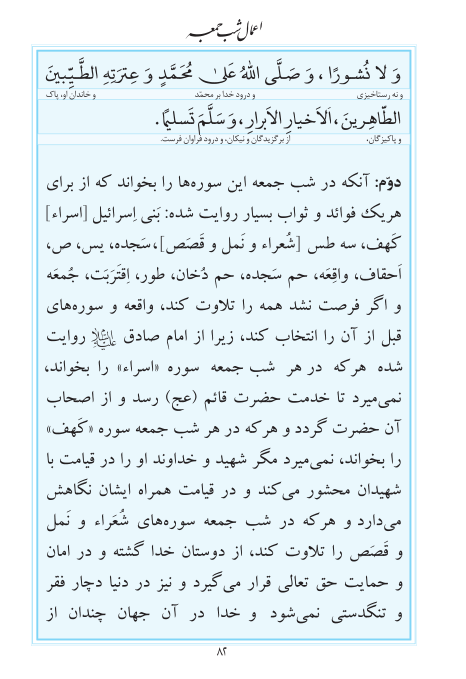 اعمال شب جمعه
وَ لا نُشورًا ، وَ صَلَّی اللهُ عَلیٰ مُحَمَّدٍ وَ عِترَتِهِ الطَّیِّبینَ
و نه رستاخیزی و درود خدا بر محمّد و خاندان او، پاک
الطّاهِرینَ، اَلاَخیارِ الاَبرارِ، وَ سَلَّمَ تَسلیمًا.
و پاکیزگان، از برگزیدگان و نیکان، و درود فراوان فرست.
دوّم: آنکه در شب جمعه این سوره‌ها را بخواند که از برای
هریک فوائد و ثواب بسیار روایت شده: بَنی اِسرائیل [اسراء]
کَهف، سه طس [شُعراء و نَمل و قَصَص]، سَجده، یس، ص،
اَحقاف، واقِعَه، حم سَجده، حم دُخان، طور، اِقتَرَبَت، جُمعَه
و اگر فرصت نشد همه را تلاوت کند، واقعه و سوره‌های
قبل از آن را انتخاب کند، زیرا از امام صادق علیه السلام روایت
شده هرکه در هر شب جمعه سوره «اسراء» را بخواند،
نمی‌میرد تا خدمت حضرت قائم (عج) رسد و از اصحاب
آن حضرت گردد و هرکه در هر شب جمعه سوره «کَهف»
را بخواند، نمی‌میرد مگر شهید و خداوند او را در قیامت با
شهیدان محشور می‌کند و در قیامت همراه ایشان نگاهش
می‌دارد و هرکه در شب جمعه سوره‌های شُعَراء و نَمل
و قَصَص را تلاوت کند، از دوستان خدا گشته و در امان
و حمایت حق تعالی قرار می‌گیرد و نیز در دنیا دچار فقر
و تنگدستی نمی‌شود و خدا در آن جهان چندان از
۸۲